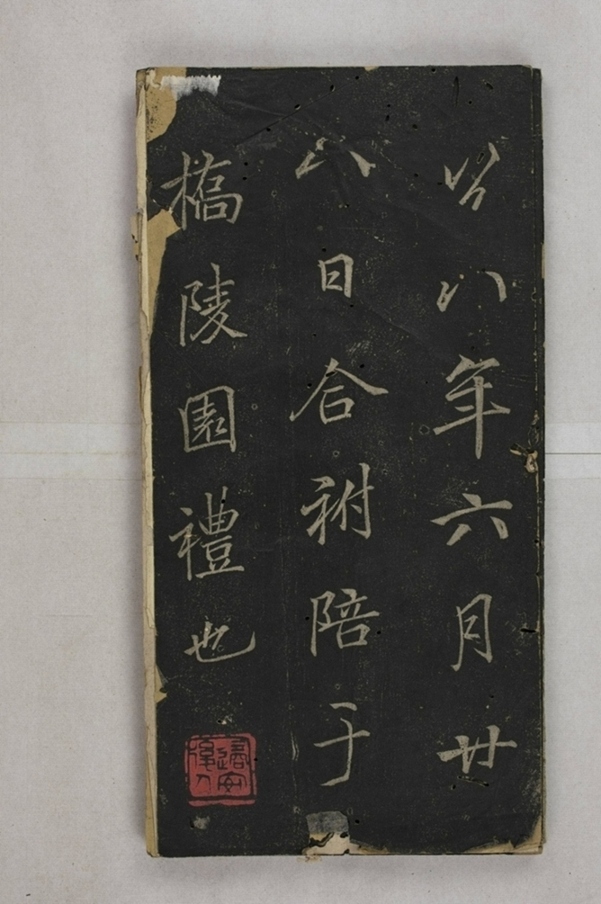 以八年六月廿
八日合祔陪于
橋陵園禮也